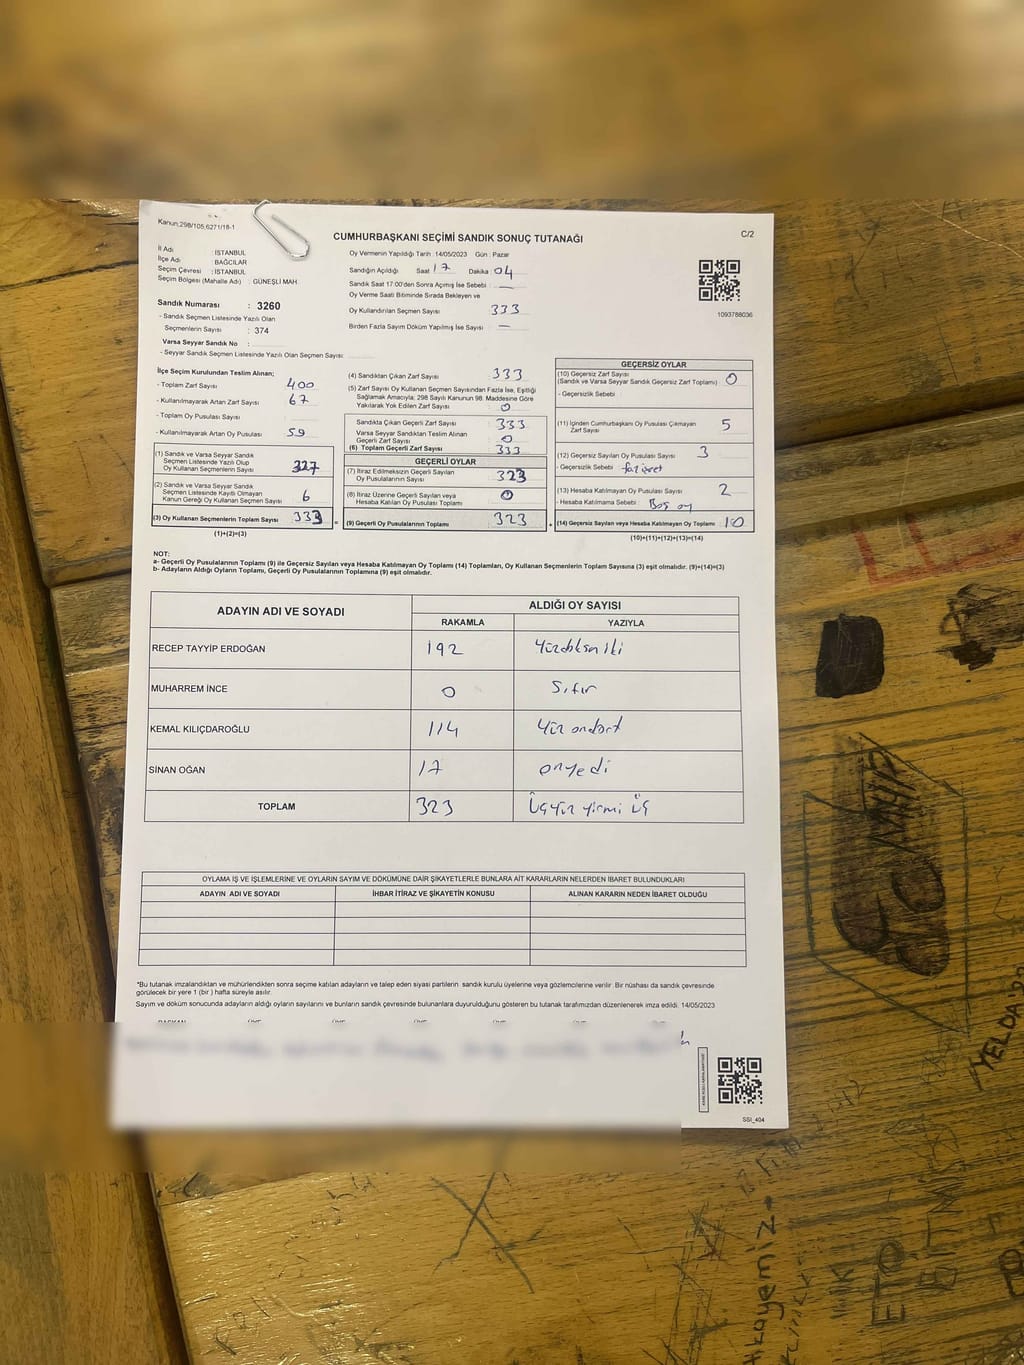 Kanun:298/105,6271/18-1
CUMHURBAŞKANI SEÇİMİ SANDIK SONUÇ TUTANAĞI
C/2
İl Adı : İSTANBUL
İlçe Adı : BAĞCILAR
Seçim Çevresi : İSTANBUL
Seçim Bölgesi (Mahalle Adı) : GÜNEŞLİ MAH.
Sandık Numarası : 3260
- Sandık Seçmen Listesinde Yazılı Olan
Seçmenlerin Sayısı : 374
Varsa Seyyar Sandık No :
- Seyyar Sandık Seçmen Listesinde Yazılı Olan Seçmen Sayısı:
Oy Vermenin Yapıldığı Tarih :14/05/2023 Gün : Pazar
Sandığın Açıldığı Saat 17 Dakika : 04
Sandık Saat 17.00'den Sonra Açımış İse Sebebi : —
Oy Verme Saati Bitiminde Sırada Bekleyen ve
Oy Kullandırılan Seçmen Sayısı : 333
Birden Fazla Sayım Döküm Yapılmış İse Sayısı : —
1093788036
İlçe Seçim Kurulundan Teslim Alınan;
- Toplam Zarf Sayısı : 400
- Kullanılmayarak Artan Zarf Sayısı : 67
- Toplam Oy Pusulası Sayısı :
- Kullanılmayarak Artan Oy Pusulası : 59
(1) Sandık ve Varsa Seyyar Sandık
Seçmen Listesinde Yazılı Olup
Oy Kullanan Seçmenlerin Sayısı : 327
(2) Sandık ve Varsa Seyyar Sandık
Seçmen Listesinde Kayıtlı Olmayan
Kanun Gereği Oy Kullanan Seçmen Sayısı : 6
(3) Oy Kullanan Seçmenlerin Toplam Sayısı : 333
(1)+(2)=(3)
(4) Sandıktan Çıkan Zarf Sayısı : 333
(5) Zarf Sayısı Oy Kullanan Seçmen Sayısından Fazla İse, Eşitliği
Sağlamak Amacıyla; 298 Sayılı Kanunun 98. Maddesine Göre
Yakılarak Yok Edilen Zarf Sayısı : 0
Sandıkta Çıkan Geçerli Zarf Sayısı : 333
Varsa Seyyar Sandıktan Teslim Alınan
Geçerli Zarf Sayısı : 0
(6) Toplam Geçerli Zarf Sayısı : 333
GEÇERLİ OYLAR
(7) İtiraz Edilmeksizin Geçerli Sayılan
Oy Pusulalarının Sayısı : 323
(8) İtiraz Üzerine Geçerli Sayılan veya
Hesaba Katılan Oy Pusulası Toplamı : 0
(9) Geçerli Oy Pusulalarının Toplamı : 323
GEÇERSİZ OYLAR
(10) Geçersiz Zarf Sayısı
(Sandık ve Varsa Seyyar Sandık Geçersiz Zarf Toplamı) : 0
- Geçersizlik Sebebi :
(11) İçinden Cumhurbaşkanı Oy Pusulası Çıkmayan
Zarf Sayısı : 5
(12) Geçersiz Sayılan Oy Pusulası Sayısı : 3
- Geçersizlik Sebebi :
(13) Hesaba Katılmayan Oy Pusulası Sayısı : 2
- Hesaba Katılmama Sebebi : Boş oy
(14) Geçersiz Sayılan veya Hesaba Katılmayan Oy Toplamı : 10
(10)+(11)+(12)+(13)=(14)
NOT:
a- Geçerli Oy Pusulalarının Toplamı (9) ile Geçersiz Sayılan veya Hesaba Katılmayan Oy Toplamı (14) Toplamları, Oy Kullanan Seçmenlerin Toplam Sayısına (3) eşit olmalıdır. (9)+(14)=(3)
b- Adayların Aldığı Oyların Toplamı, Geçerli Oy Pusulalarının Toplamına (9) eşit olmalıdır.
ADAYIN ADI VE SOYADI
ALDIĞI OY SAYISI
RAKAMLA YAZIYLA
RECEP TAYYİP ERDOĞAN 192 Yüzdoksaniki
MUHARREM İNCE 0 Sıfır
KEMAL KILIÇDAROĞLU 114 Yüz ondört
SİNAN OĞAN 17 onyedi
TOPLAM 323 Üçyüz yirmi üç
OYLAMA İŞ VE İŞLEMLERİNE VE OYLARIN SAYIM VE DÖKÜMÜNE DAİR ŞİKAYETLERLE BUNLARA AİT KARARLARIN NELERDEN İBARET BULUNDUKLARI
ADAYIN ADI VE SOYADI İHBAR İTİRAZ VE ŞİKAYETİN KONUSU ALINAN KARARIN NEDEN İBARET OLDUĞU
*Bu tutanak imzalandıktan ve mühürlendikten sonra seçime katılan adayların ve talep eden siyasi partilerin sandık kurulu üyelerine veya gözlemcilerine verilir. Bir nüshası da sandık çevresinde
görülecek bir yere 1 (bir) hafta süreyle asılır.
Sayım ve döküm sonucunda adayların aldığı oyların sayılarını ve bunların sandık çevresinde bulunanlara duyurulduğunu gösteren bu tutanak tarafımızdan düzenlenerek imza edildi. 14/05/2023
SSİ_404
YELDA